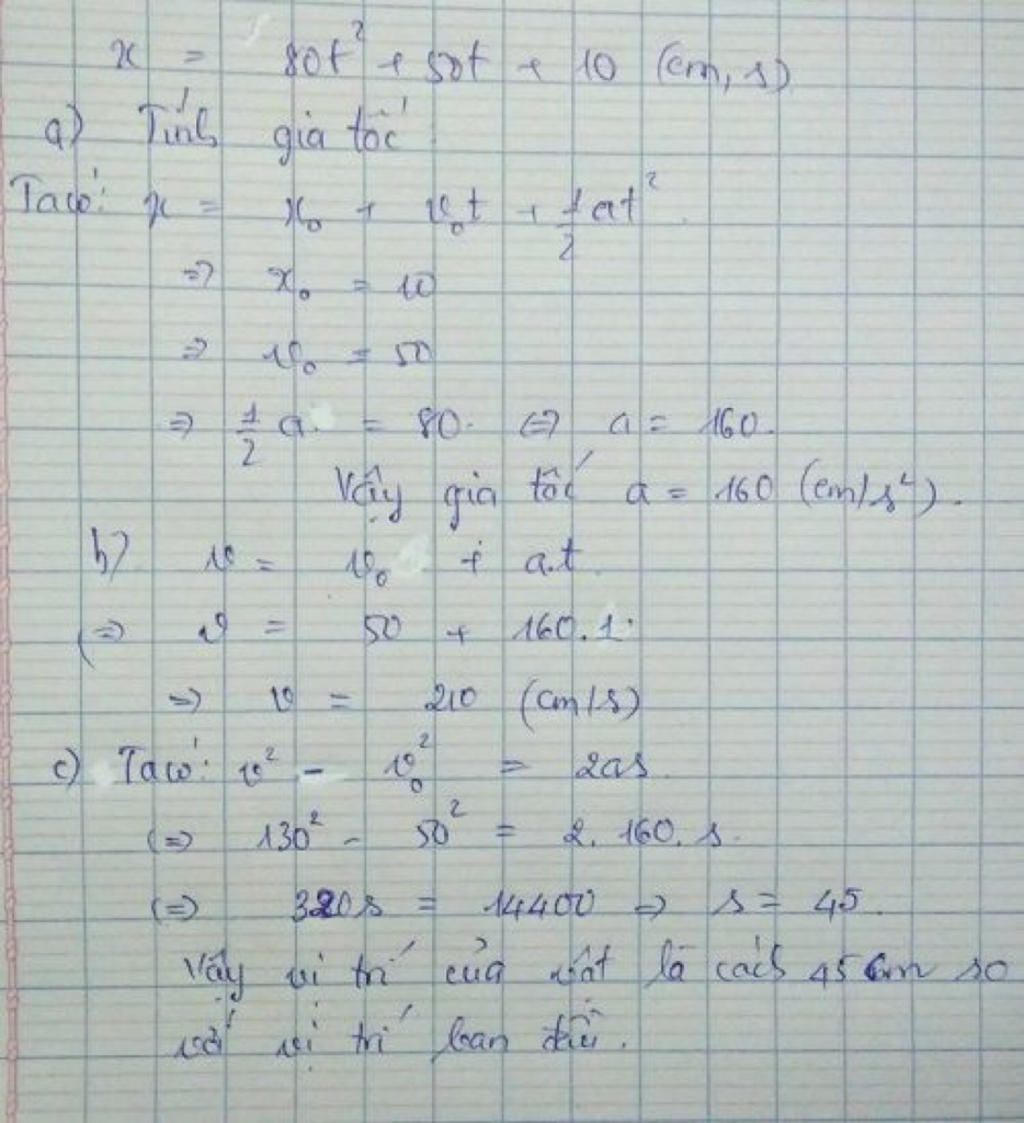 x = 80t² + 50t + 10 (cm, s)
a) Tính gia tốc
Ta có: x = x₀ + v₀t + 1/2 at².
=> x₀ = 10
=> v₀ = 50
=> 1/2 a = 80. <=> a = 160.
Vậy gia tốc a = 160 (cm/s²).
b) v = v₀ + a.t
<=> v = 50 + 160.1.
=> v = 210 (cm/s)
c) Ta có: v² - v₀² = 2as
<=> 130² - 50² = 2. 160. s.
<=> 320s = 14400 => s = 45.
Vậy vị trí của vật là cách 45 cm so
với vị trí ban đầu.